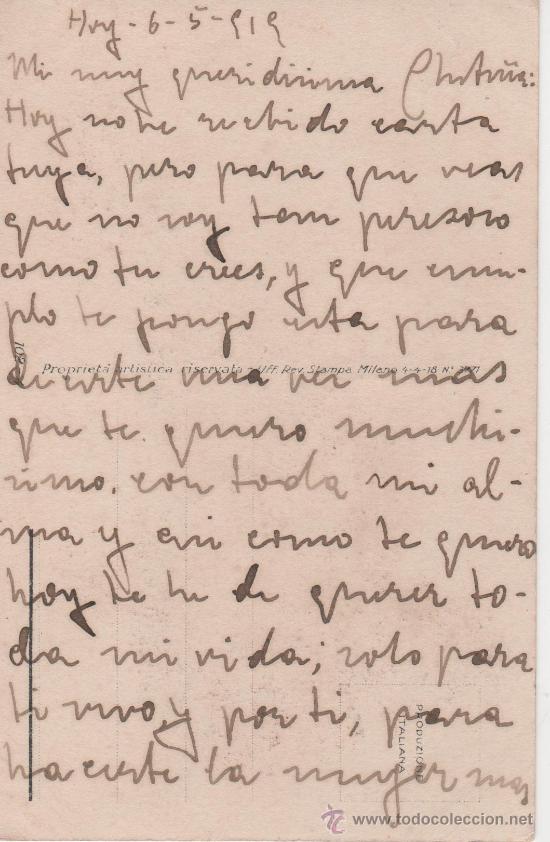 Hoy - 6 - 5 - 919
Mi muy queridisima
Hoy no he recibido carta
tuya, pero para que veas
que no soy tan perezoso
como tu crees, y que cum-
plo te pongo esta para
108
Proprietà artistica riservata - Uff. Rev. Stampa Milano 4-4-18 N°
decirte una vez mas
que te quiero muchi-
simo, con toda mi al-
ma y asi como te quiero
hoy te he de querer to-
da mi vida; solo para
ti vivo, y por ti, para
PRODUZIONE
ITALIANA
hacerte la mujer mas
www.todocoleccion.net